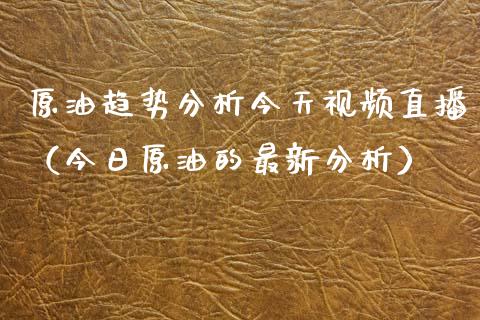 原油趋势分析今天视频直播
（今日原油的最新分析）